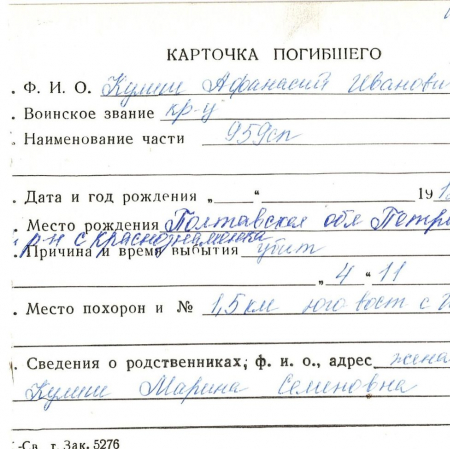 КАРТОЧКА ПОГИБШЕГО
. Ф. И. О. Кулиш Афанасий Иванови
. Воинское звание кр-ц
. Наименование части 959сп
. Дата и год рождения „ “ 19
. Место рождения Полтавская обл Петр
р-н с Краснознаменка
. Причина и время выбытия убит
„ 4 “ 11
. Место похорон и № 1,5 км юго вост с
. Сведения о родственниках, ф. и. о., адрес жена
Кулиш Марина Семеновна
-Св. т. Зак. 5276